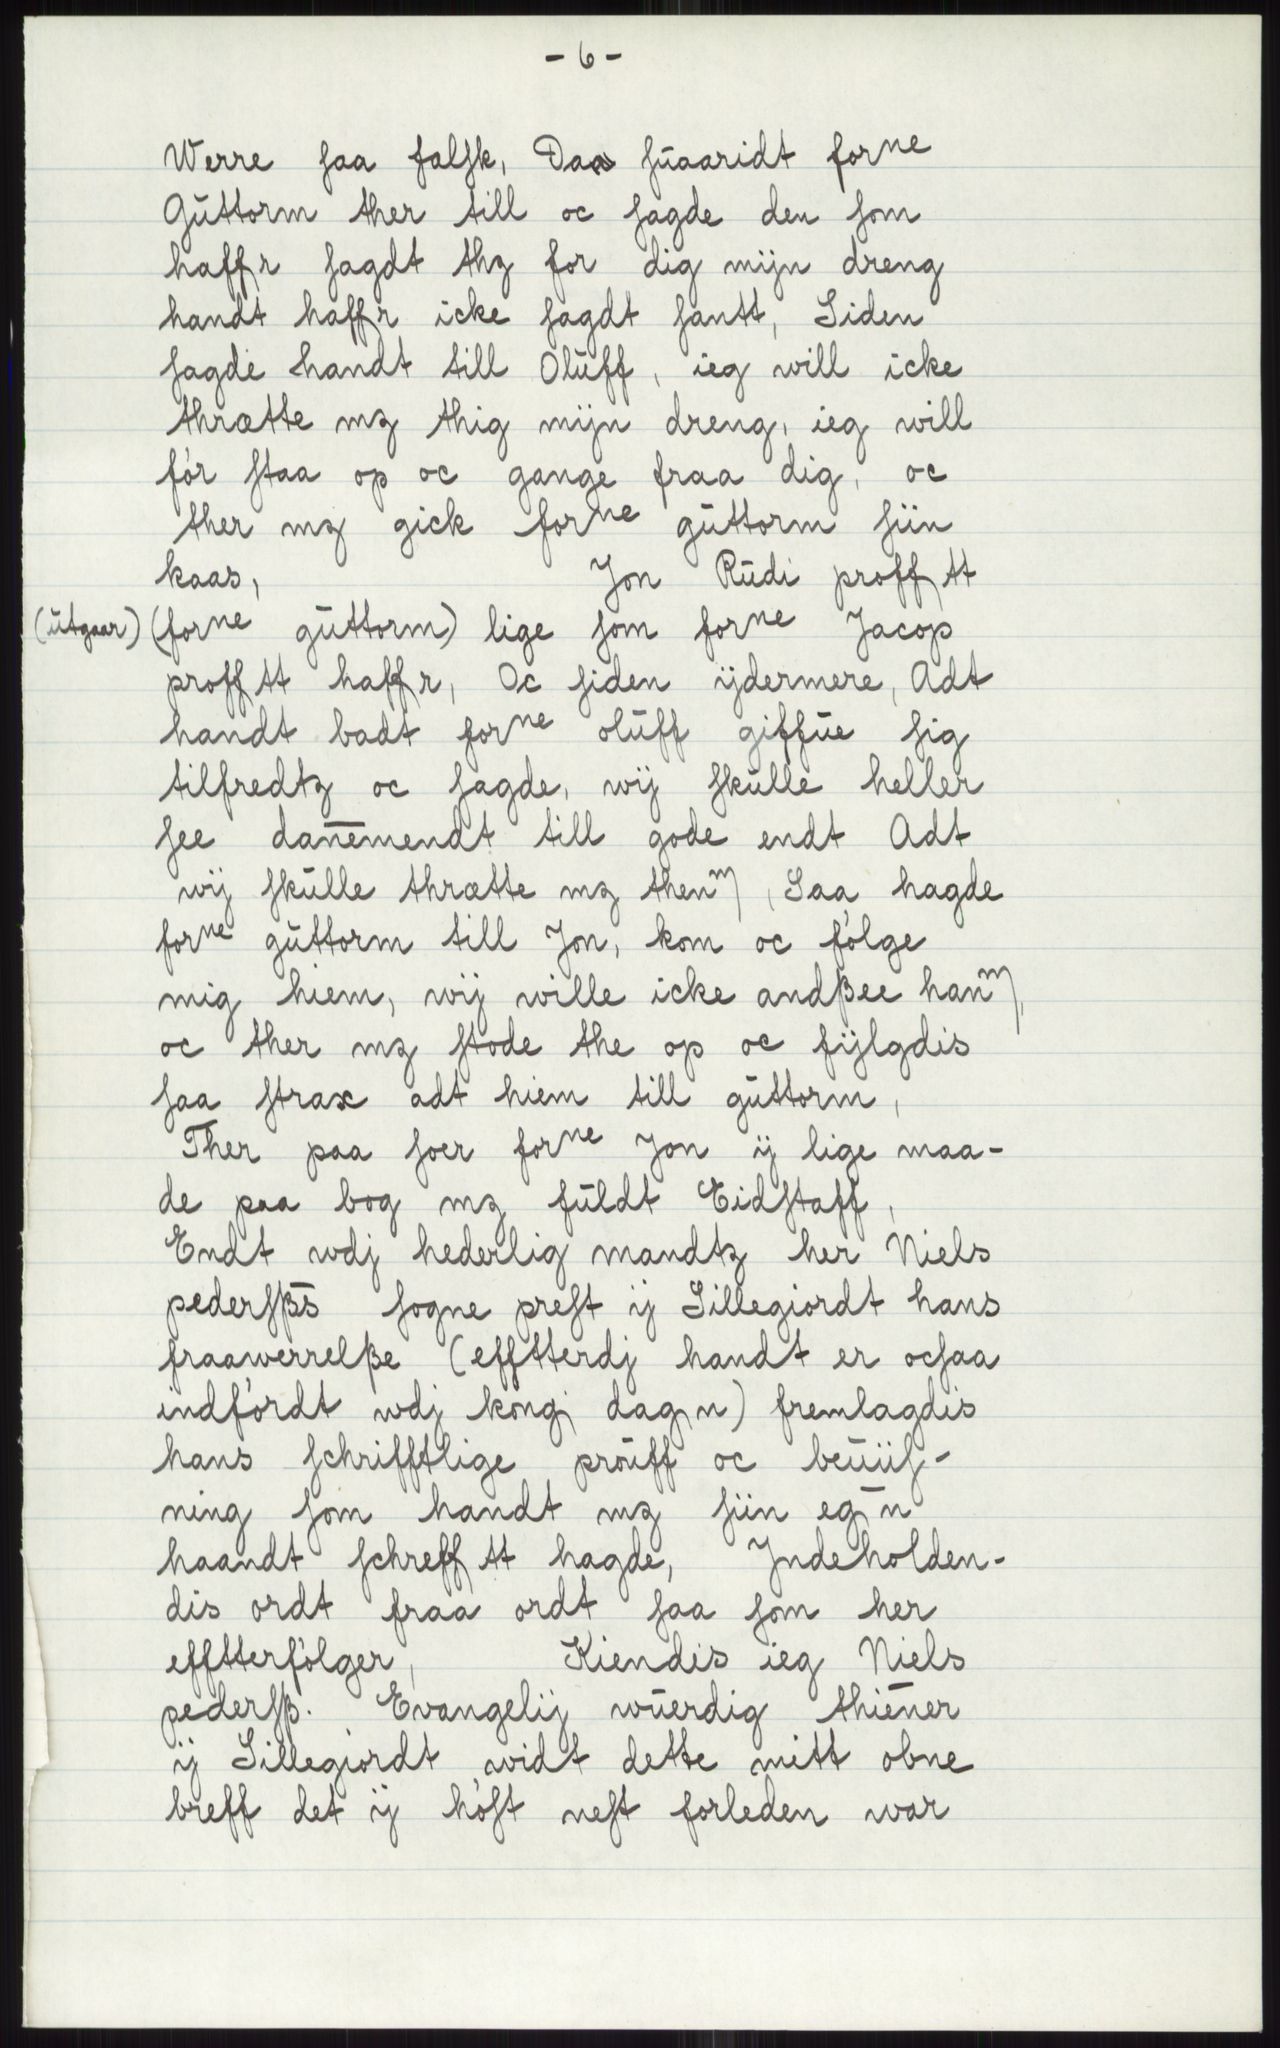 - 6 -
Werre saa falsk, Daa suaaridt forne
Guttorm ther till oc sagde den som
haffr sagdt thz for dig mijn dreng
handt haffr icke sagdt santt, Siden
sagde handt till Oluff, ieg will icke
thrætte mz thig mijn dreng, ieg will
før staa op oc gange fraa dig, oc
ther mz gick forne guttorm siin
kaas, Jon Rudi proff tt
(utgaar) (forne guttorm) lige som forne Jacop
proff tt haffr, Oc siden ÿdermere, Adt
handt badt forne oluff giffue sig
tilfredtz oc sagde, wij skulle heller
see danemendt till gode endt Adt
wij skulle thrætte mz thenm, Saa hagde
forne guttorm till Jon, kom oc følge
mig hiem, wij wille icke andßee hanm,
oc ther mz stode the op oc fÿlgdis
saa strax adt hiem till guttorm,
Ther paa soer forne Jon ij lige maa-
de paa bog mz fuldt Eidstaff,
Endt wdj hederlig mandtz her Niels
pedersßs sogne prest ij Sillegiordt hans
fraawerrelße (efftterdj handt er ocsaa
indfördt wdj kong dagn) fremlagdis
hans schrifftlige prouff oc beuiis-
ning som handt mz siin egn
haandt schreff tt hagde, Jndeholden-
dis ordt fraa ordt saa som her
efftterfølger, Kiendis ieg Niels
pedersß. Evangelij wuerdig thiener
ij Sillegiordt widt dette mitt obne
breff det ij høst nest forleden war